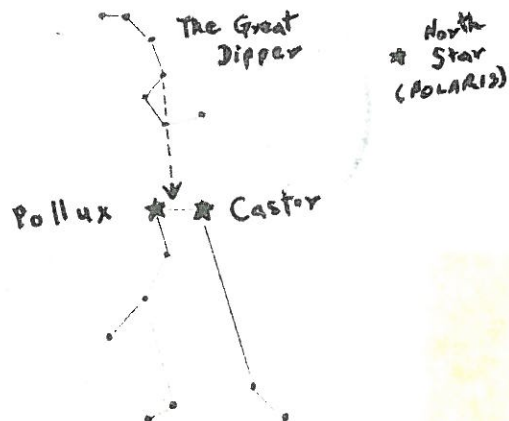 The Great
Dipper
North
Star
(POLARIS)
Pollux
Castor